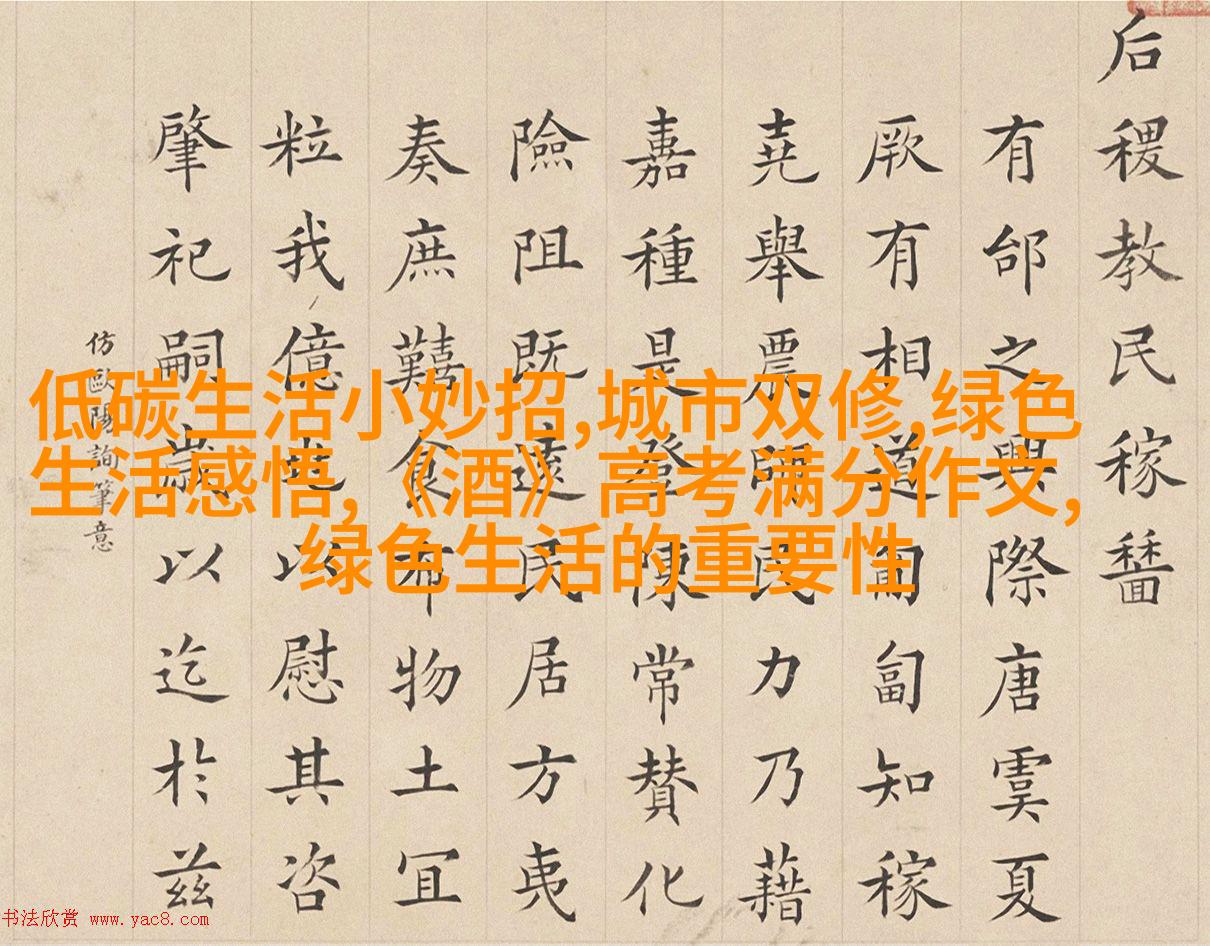 后稷教民稼穡
有邰之興際唐虞夏
厥有相道匍匐知稼
堯舉農師民力乃藉
嘉種是登陳常贊化
險阻既遠民居方夷
奏庶艱食布物土宜
粒我億以慰其咨
肇祀嗣歲以迄於茲
仿歐陽詢筆意
低碳生活小妙招,城市双修,绿色
生活感悟,《酒》高考满分作文,
绿色生活的重要性
书法欣赏 www.yac8.com